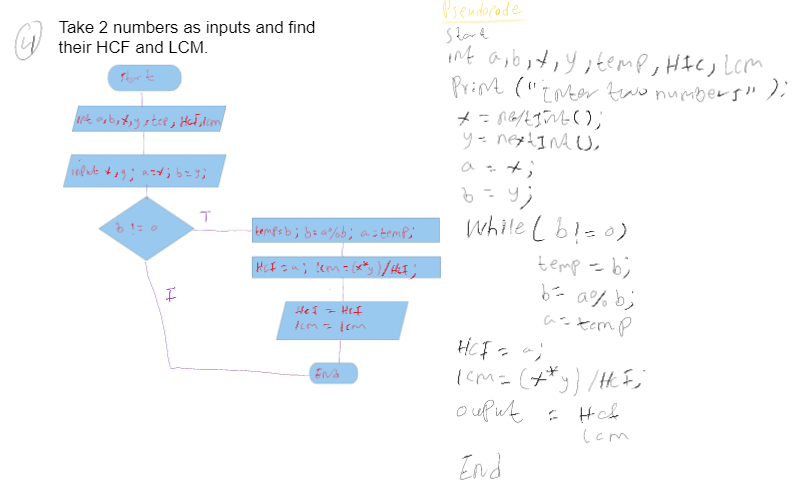 4
Take 2 numbers as inputs and find
their HCF and LCM.
Start
int a,b,x,y,temp, HCF,lcm
input x,y; a=x; b=y;
b != 0
T
temp=b; b=a%b; a=temp;
HCF=a; lcm=(x*y)/HCF;
F
HCF = HCF
lcm = lcm
End
Pseudocode
Start
int a,b,x,y,temp, HFC, Lcm
Print ("Enter two numbers");
x = nextInt();
y = nextInt();
a = x;
b = y;
While ( b != 0)
temp = b;
b = a%b;
a = temp
HCF = a;
lcm = (x*y)/HCF;
ouput = Hcf
Lcm
End